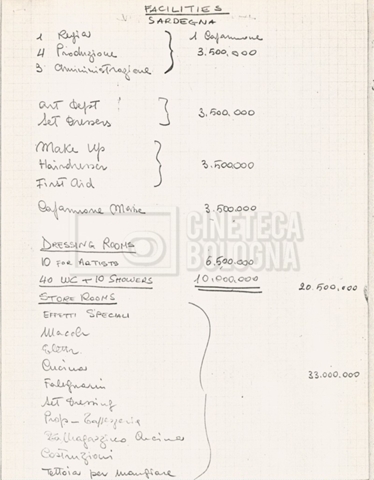 FACILITIES
SARDEGNA
1 Regia 1 Capannone
4 Produzione 3.500,000
3 Amministrazione
Art Dept !
Set Dressers 3.500,000
Make Up
Hairdresser 3.500.000
First Aid
Capannone 3.500.000
CINETECA
BOLOGNA
DRESSING ROOMS
10 FOR ARTISTS 6.500.000
40 WC + 10 SHOWERS 10,000,000 20.500,000
STORE ROOMS
EFFETTI SPECIALI
Macch
Elettr
Cucina 33.000.000
Falegnami
Set Dressing
Props - Tappezzeria
Magazzino Cucina
Costruzioni
Tettoia per mangiare